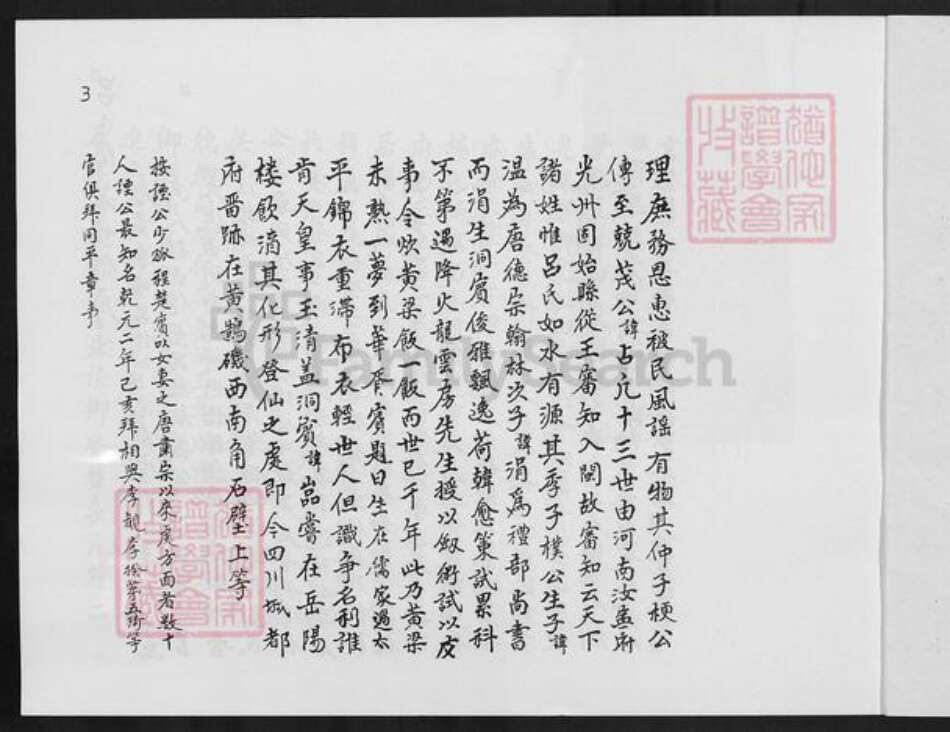 理庶務恩惠被民風謠有物其仲子梗公
傳至兢茂公諱占凢十三世由河南汝盂府
光州固始縣從王審知入閩故審知云天下
諸姓惟呂氏如水有源其季子樸公生子諱
温為唐德宗翰林次子諱涓爲禮部尚書
而涓生洞賓俊雅飄逸荷韓愈策試累科
不第遇降火龍雲房先生授以劔術試以皮
事令炊黃梁飯一飯而世已千年此乃黃梁
未熟一夢到華胥賓題曰生在儒家遇太
平錦衣重滯布衣輕世人但識爭名利誰
肯天皇事玉清盖洞賓諱嵒嘗在岳陽
楼飲酒其化形登仙之處即今四川城都
府晋跡在黃鶴磯西南角石壁上等
按諲公少孤程楚賓以女妻之唐肅宗以來處方面者数十
人諲公最知名乾元二年己亥拜相與李峴李揆第五琦等
官俱拜同平章事
3
猶他家
譜學會
收藏
猶他家
譜學會
收藏
FamilySearch